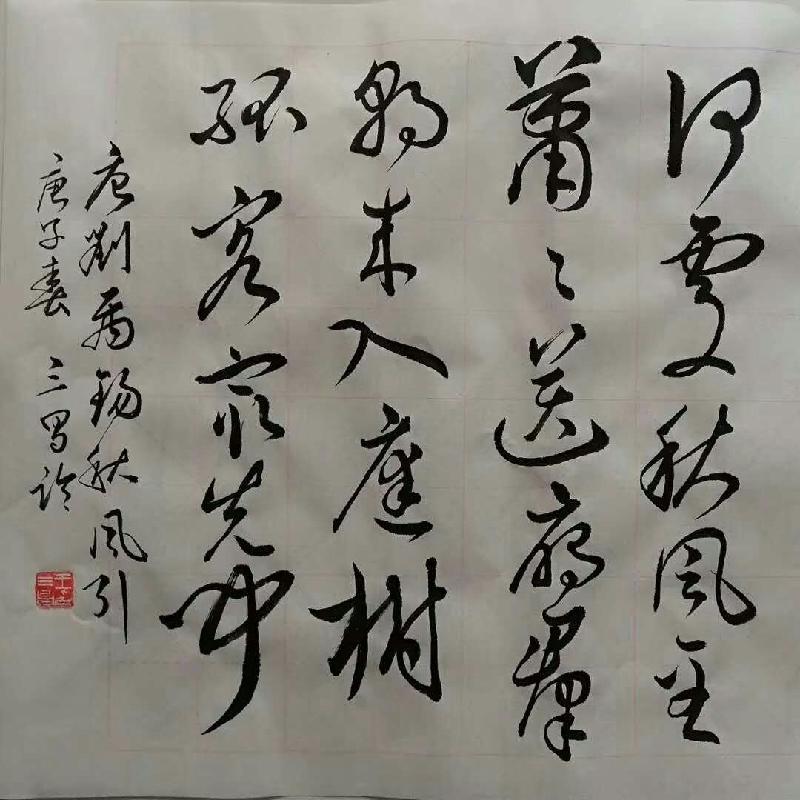 何處秋風至
蕭〻送雁羣
朝来入庭樹
孤客最先聞
唐劉禹錫秋風引
庚子春 三